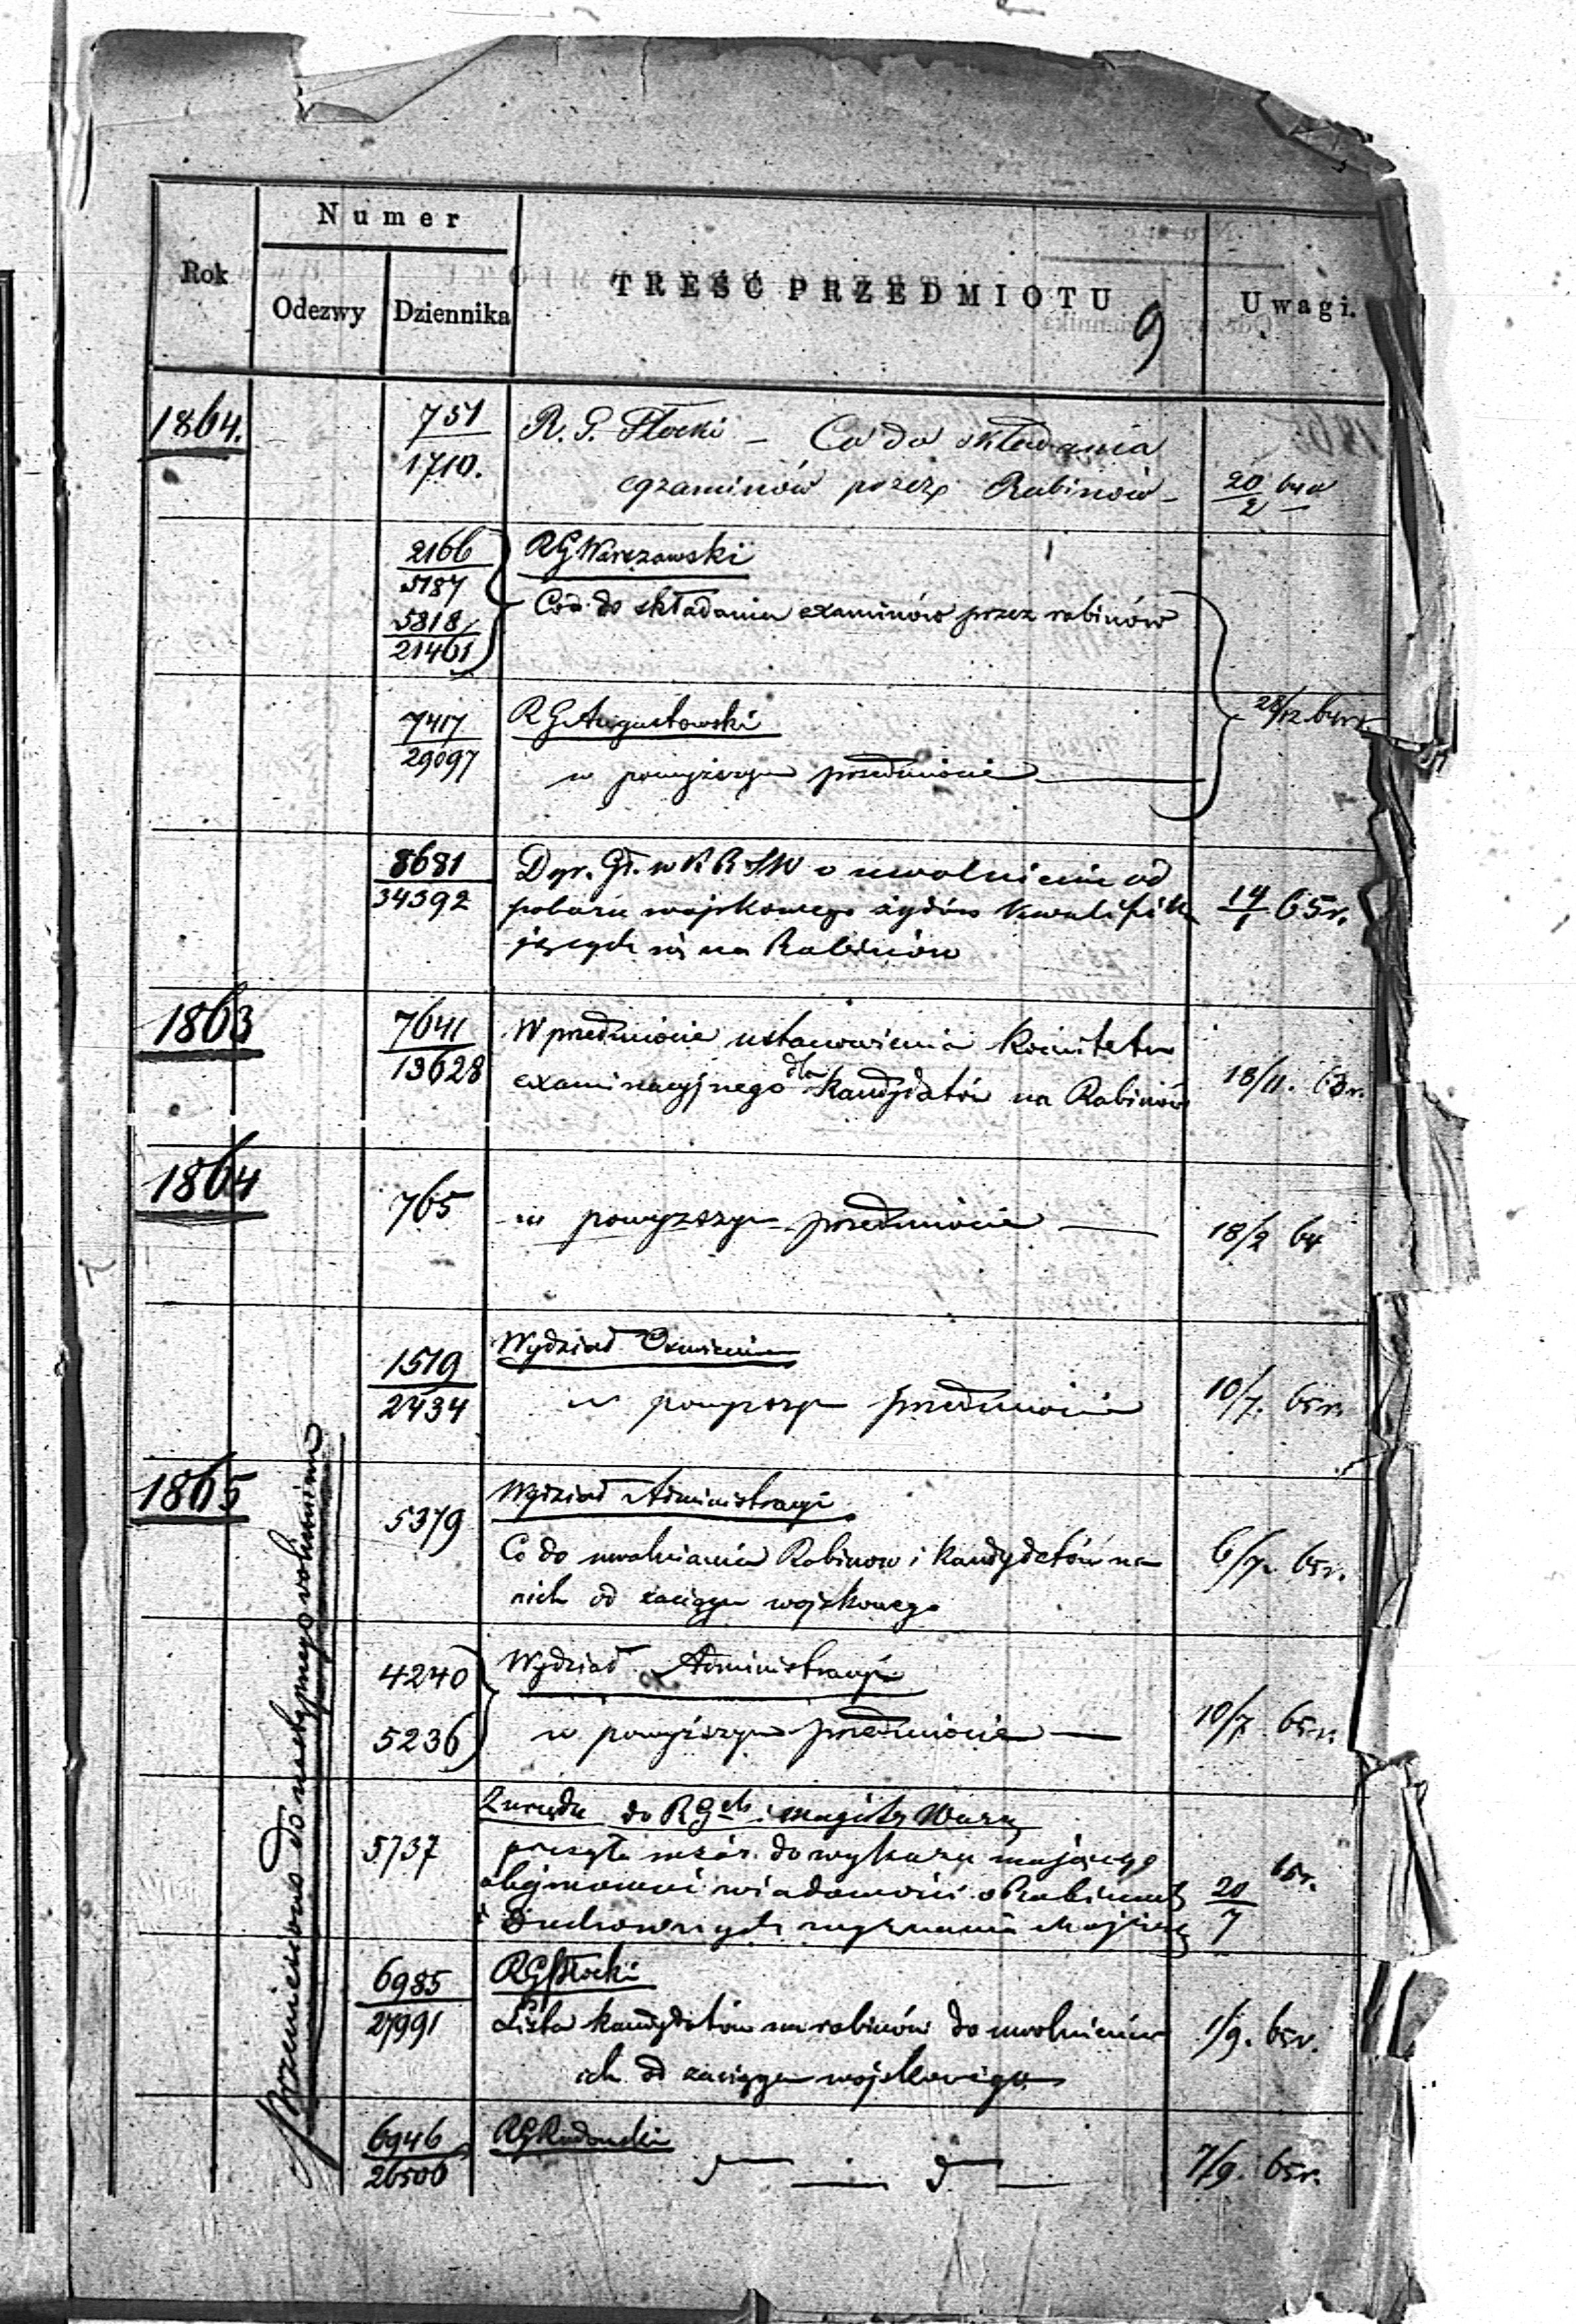 Numer
Rok
Odezwy
Dziennika
TREŚĆ PRZEDMIOTU
Uwagi.
9
1864.
751
1710.
R. G. Płocki – Co do składania
egzaminów przez Rabinów –
20/2 64
2166
5187
5818
21461
RG Warszawski
Co do składania examinów przez rabinów
7417
29097
RG Augustowski
w powyższym przedmiocie
28/12 64
8681
34392
Dyr. Gł. w KRSW o uwolnienie od
poboru wojskowego żydów kwalifik
jących się na Rabinów
14/1 65r.
1863
7641
13628
W przedmiocie ustanowienia Komitetu
examinacyjnego dla kandydatów na Rabinów
18/11. 63r.
1864
765
w powyższym przedmiocie
18/2 64
1519
2434
Wydział Oświecenia
w powyższym przedmiocie
10/7. 65r.
1865
5379
Wydział Administracyi
Co do uwolniania Rabinow i kandydatów na
nich od zaciągu wojskowego
6/7. 65r.
4240
5236
Wydział Administracyi
w powyższym przedmiocie
10/7. 65r.
5737
Z urzędu do RGch i magistr. Warsz
przesyła wzór do wykazu mającego
obejmować wiadomości o Rabinach
i Duchownych wyznania Mojżesz
20/7 65r.
6985
27991
RG Płocki
Lista kandydatów na rabinów do uwolnienia
ich od zaciągu wojskowego
1/9. 65r.
6946
26506
RG Radomski
d — d —
7/9. 65r.
Przeniesiono do następnego voluminu